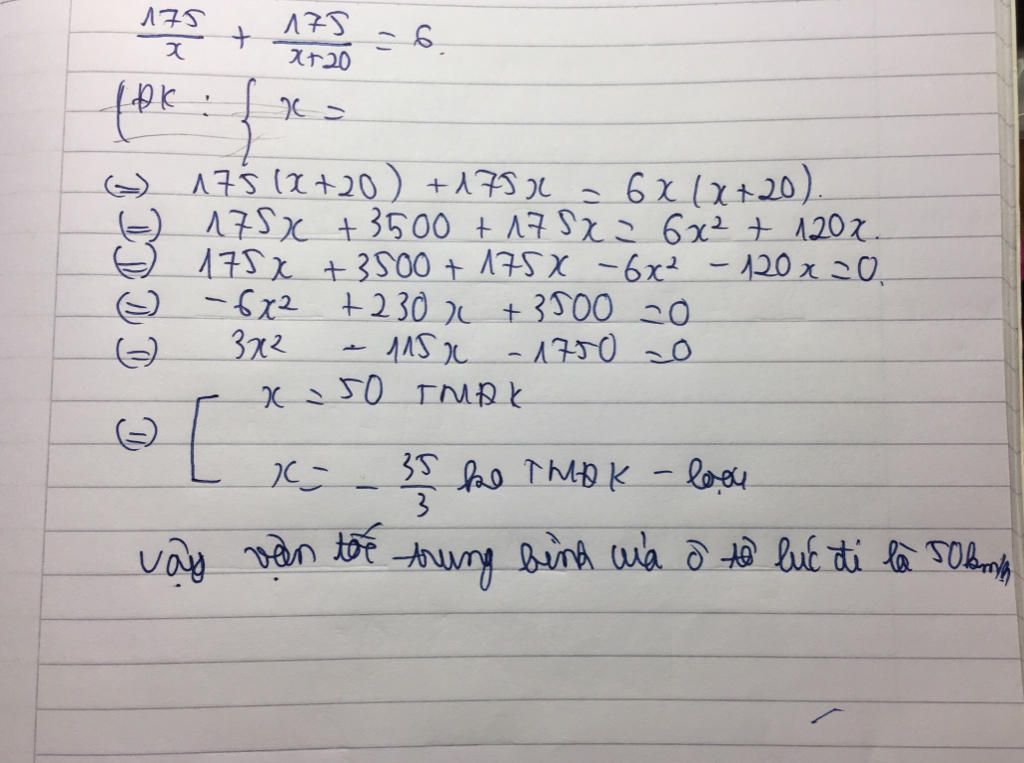 175/x + 175/(x+20) = 6.
ĐK : { x =
(=) 175(x+20) + 175x = 6x(x+20).
(=) 175x + 3500 + 175x = 6x² + 120x.
(=) 175x + 3500 + 175x - 6x² - 120x = 0.
(=) -6x² + 230x + 3500 = 0
(=) 3x² - 115x - 1750 = 0
(=) [ x = 50 TMĐK
x = - 35/3 ko TMĐK - loại
Vậy vận tốc trung bình của ô tô lúc đi là 50km/h